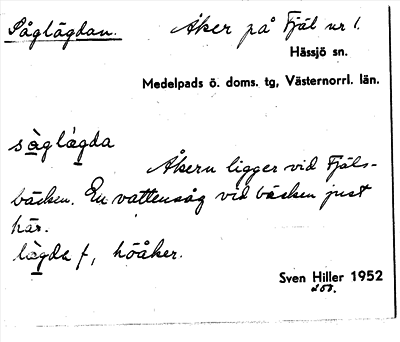 Såglägdan. Åker på Fjäl nr 1.
Hässjö sn.
Medelpads ö. doms. tg, Västernorrl. län.
sàglágda
Åkern ligger vid Fjäls-
bäcken. En vattensåg vid bäcken just
här.
làgda f, höåker.
Sven Hiller 1952